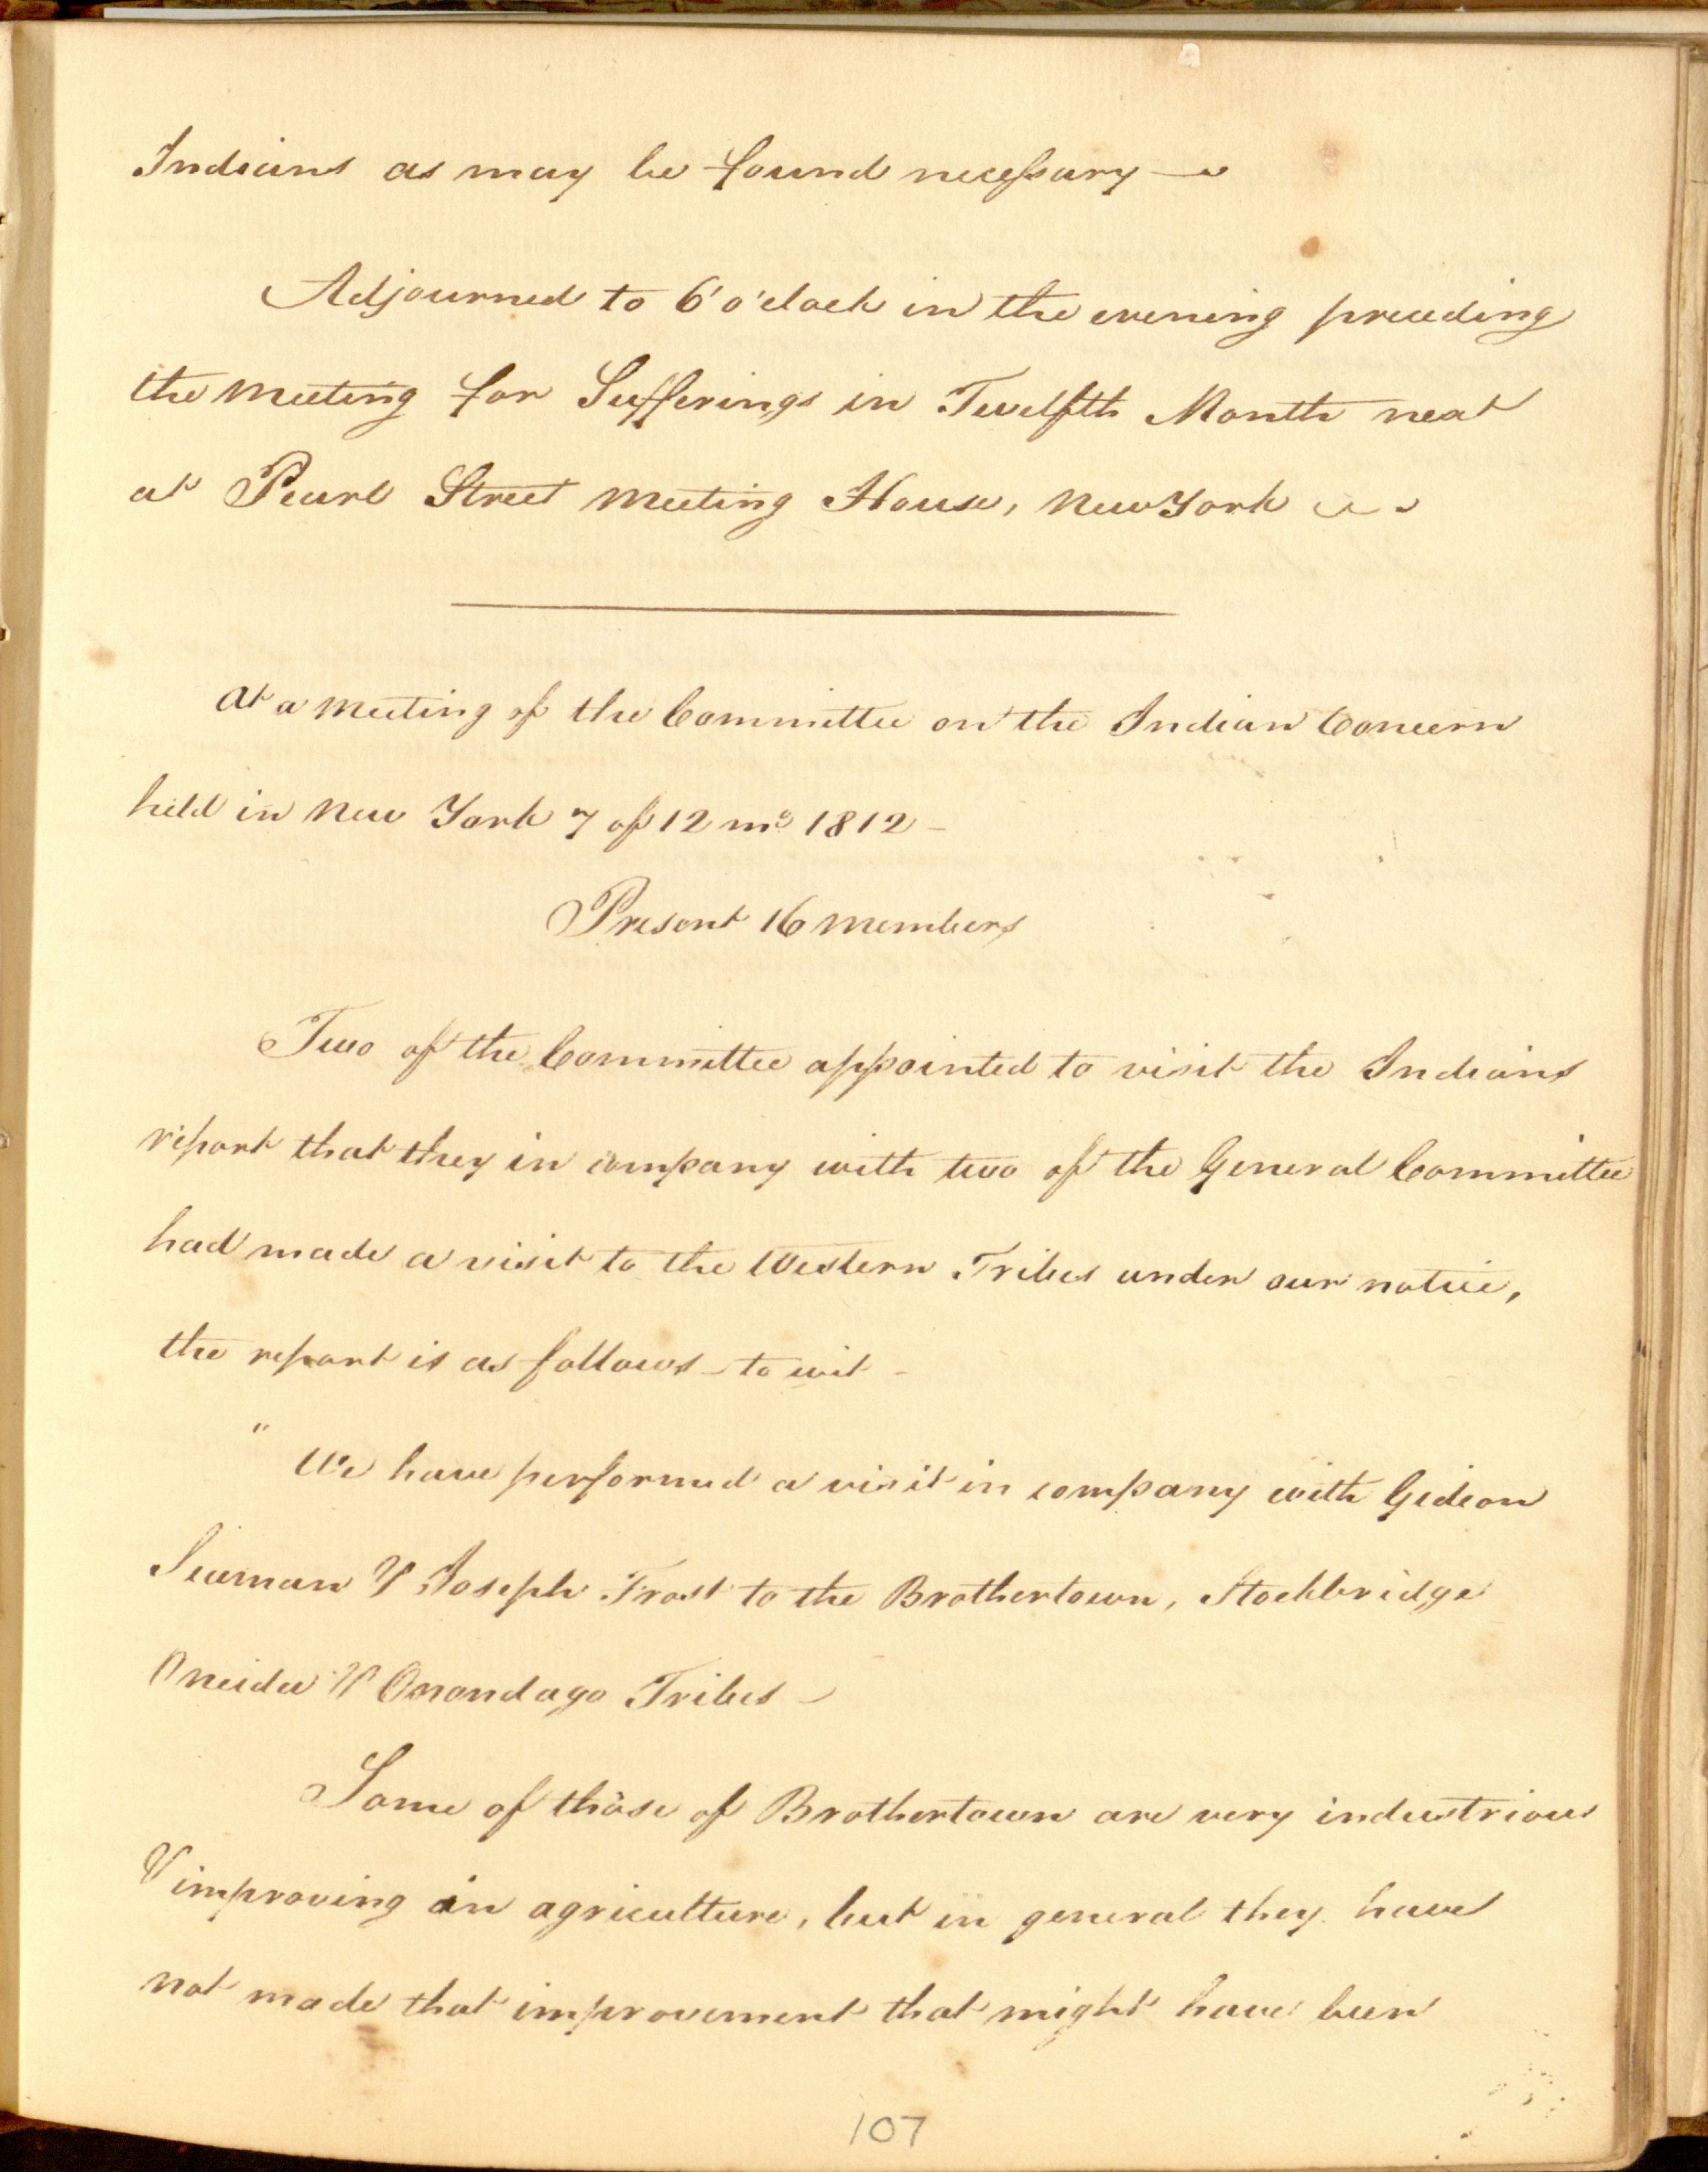 Indians as may be found necessary —
Adjourned to 6 o'clock in the evening preceding
the meeting for Sufferings in Twelfth Month next
at Pearl Street meeting House, New York
At a meeting of the Committee on the Indian Concern
held in New York 7 of 12 mo. 1812 –
Present 16 members
Two of the Committee appointed to visit the Indians
report that they in company with two of the General Committee
had made a visit to the Western Tribes under our notice,
the report is as follows – to wit –
" We have performed a visit in company with Gideon
Seaman & Joseph Frost to the Brothertown, Stockbridge
Oneida & Onondago Tribes –
Some of those of Brothertown are very industrious
& improving in agriculture, but in general they have
not made that improvement that might have been
107